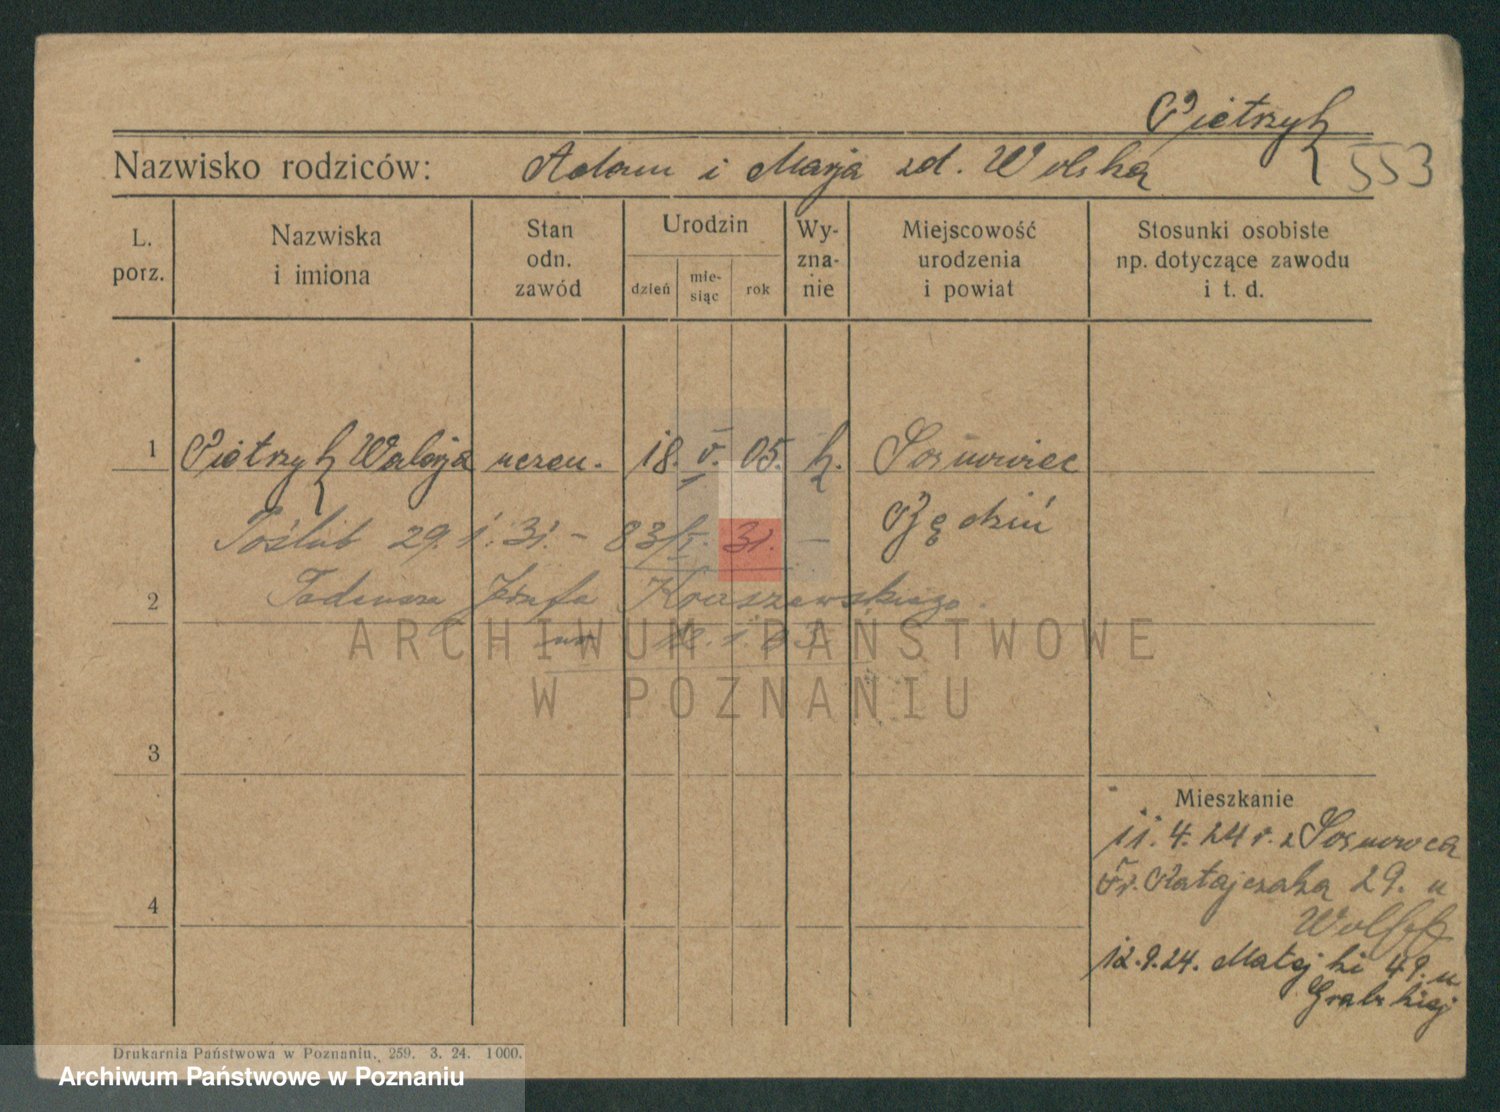 Pietrzyk
Nazwisko rodziców: Adam i Marja zd. Wolska 553
L. porz.
Nazwiska i imiona
Stan odn. zawód
Urodzin
dzień
mie-siąc
rok
Wy-zna-nie
Miejscowość urodzenia i powiat
Stosunki osobiste np. dotyczące zawodu i t. d.
1 Pietrzyk Walerja uczen. 18. V. 05. k. Sosnowiec
Będzin
Poślub 29. 1. 31. - 83/I. 31. -
2 Tadeusza Józefa Kraszewskiego.
ur. 1.03.
ARCHIWUM PAŃSTWOWE
W POZNANIU
3
4
Mieszkanie
11. 4. 24 r. z Sosnowca
Fr. Ratajczaka 29. u
12.9.24. Matejki 49. u
Grabskiej
Drukarnia Państwowa w Poznaniu. 259. 3. 24. 1000.
Archiwum Państwowe w Poznaniu